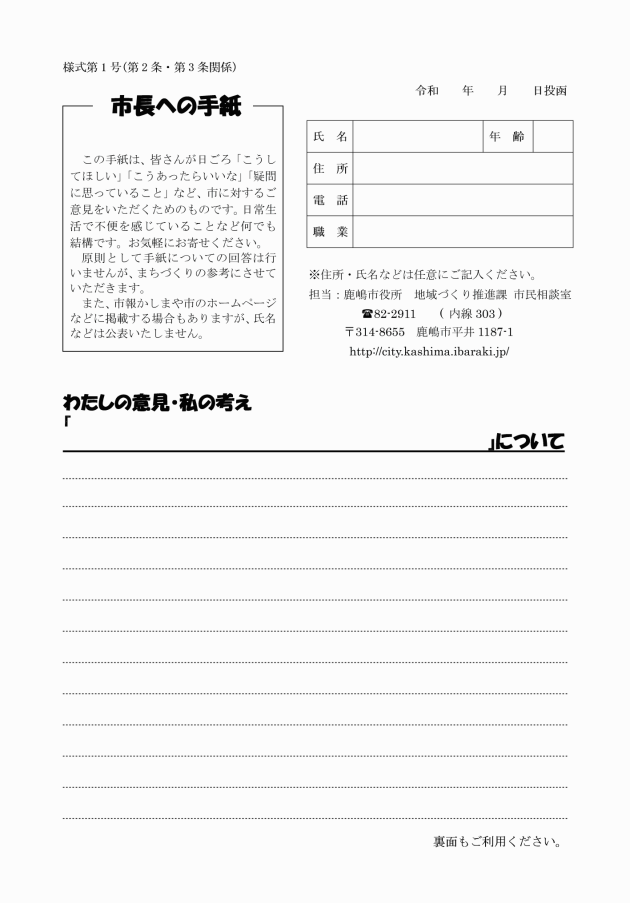 様式第1号(第2条・第3条関係)
令和　　年　　月　　日投函
市長への手紙
この手紙は、皆さんが日ごろ「こうし
てほしい」「こうあったらいいな」「疑問
に思っていること」など、市に対するご
意見をいただくためのものです。日常生
活で不便を感じていることなど何でも
結構です。お気軽にお寄せください。
原則として手紙についての回答は行
いませんが、まちづくりの参考にさせて
いただきます。
また、市報かしまや市のホームページ
などに掲載する場合もありますが、氏名
などは公表いたしません。
氏　名
年　齢
住　所
電　話
職　業
※住所・氏名などは任意にご記入ください。
担当：鹿嶋市役所　地域づくり推進課 市民相談室
☎82-2911　　( 内線 303 )
〒314-8655　鹿嶋市平井 1187-1
http://city.kashima.ibaraki.jp/
わたしの意見・私の考え
「
」について
裏面もご利用ください。